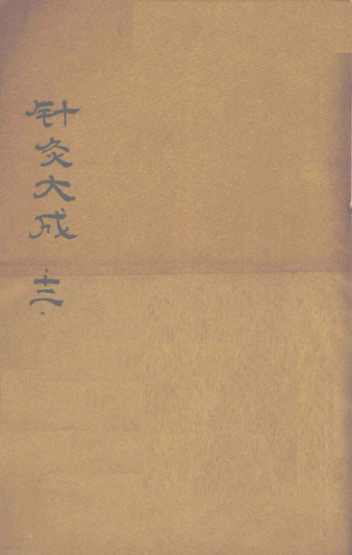 针灸大成·十三·